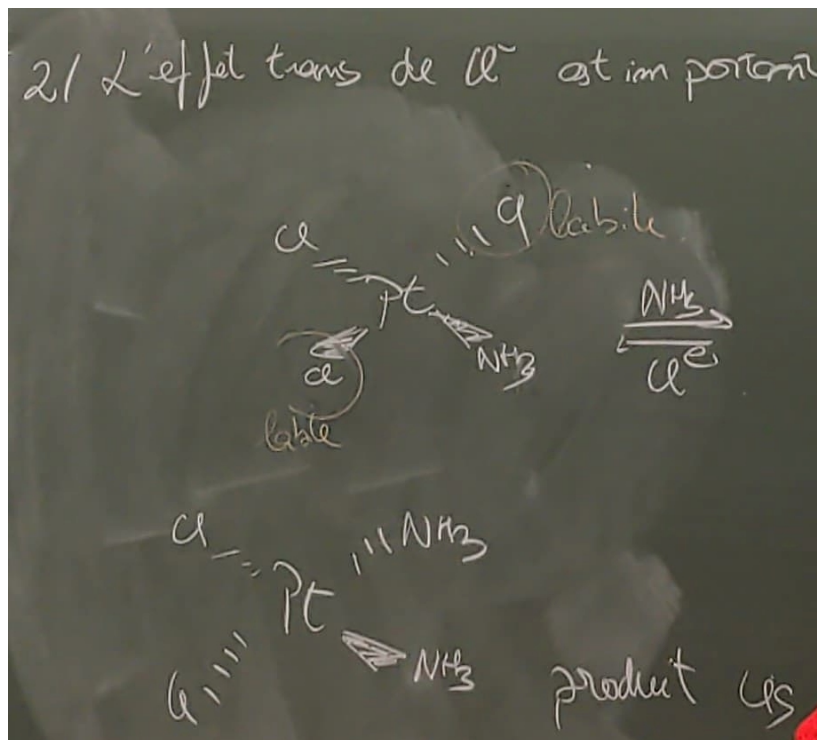 2/ L'effet trans de Cl⁻ est important
Cl Cl labile
Pt NH3
Cl NH3 Cl⊖
labile
Cl NH3
Pt
Cl NH3 produit cis